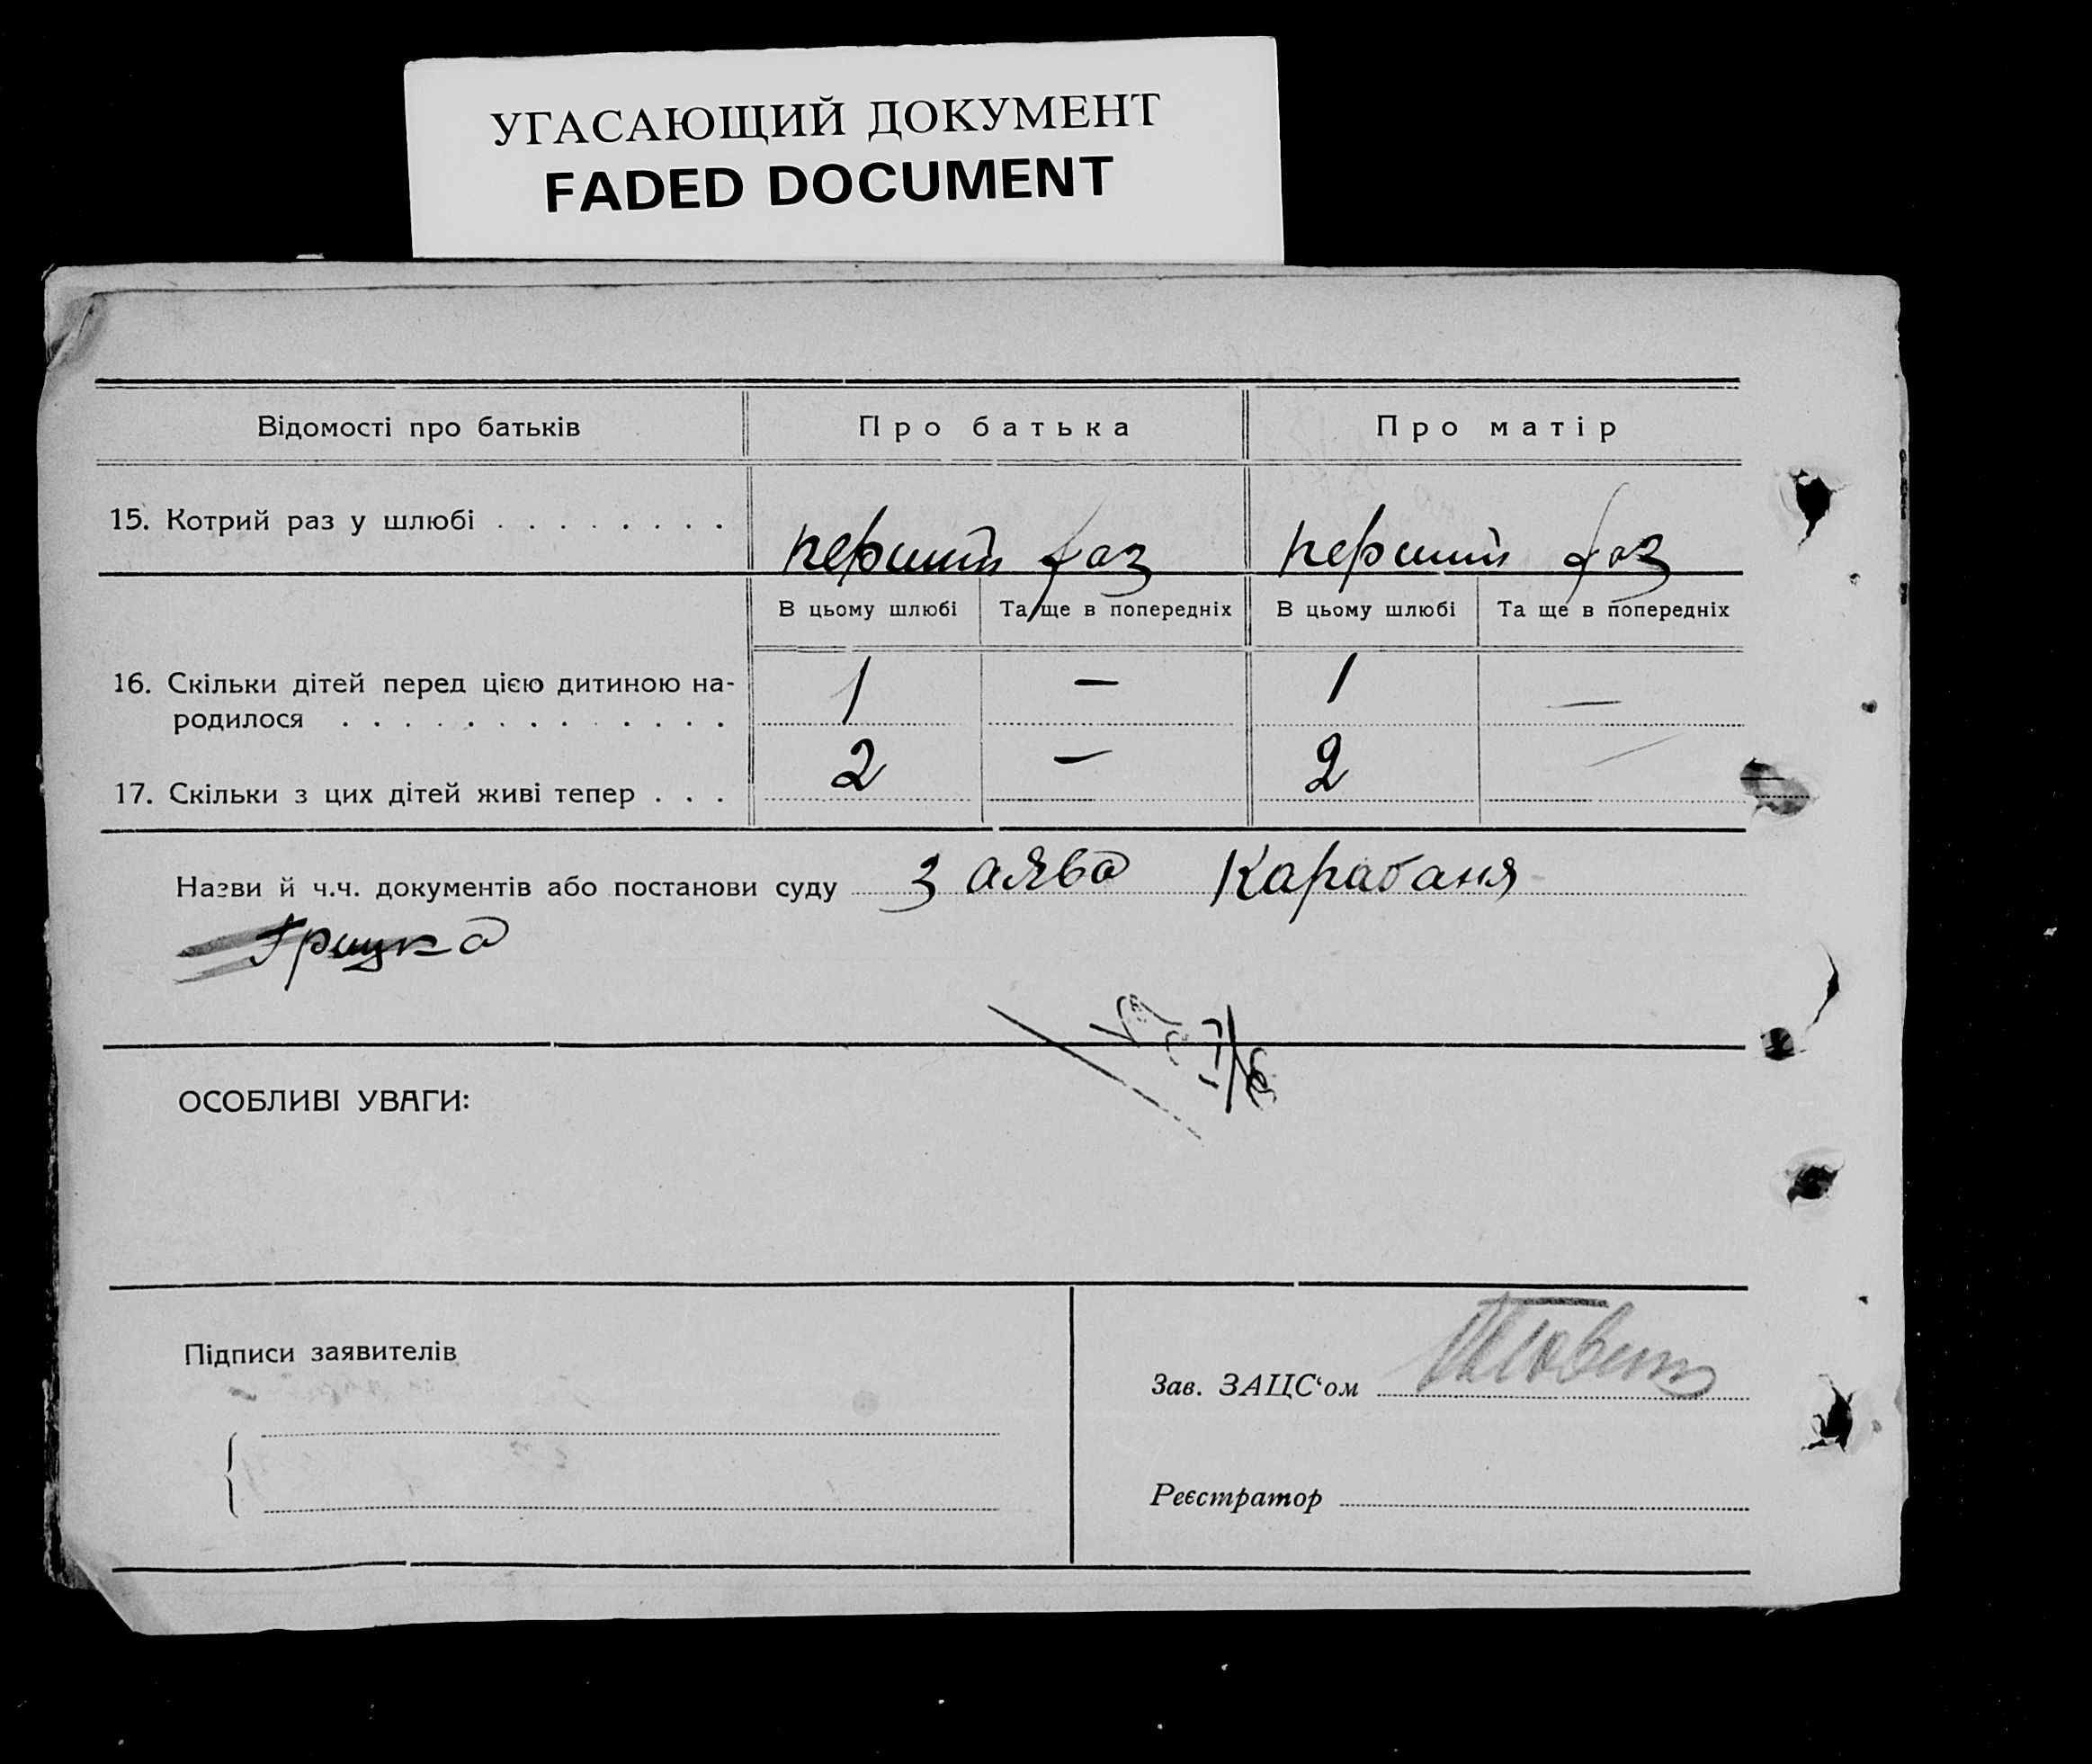 УГАСАЮЩИЙ ДОКУМЕНТ
FADED DOCUMENT
Відомості про батьків Про батька Про матір
15. Котрий раз у шлюбі . . . . . . . . перший раз перший раз
В цьому шлюбі Та ще в попередніх В цьому шлюбі Та ще в попередніх
16. Скільки дітей перед цією дитиною на- 1 — 1 —
родилося . . . . . . . . . . . . .
17. Скільки з цих дітей живі тепер . . . 2 — 2 —
Назви й ч.ч. документів або постанови суду заява Карабаня
Грицка
ОСОБЛИВІ УВАГИ:
Підписи заявителів
Зав. ЗАЦС‘ом
Реєстратор